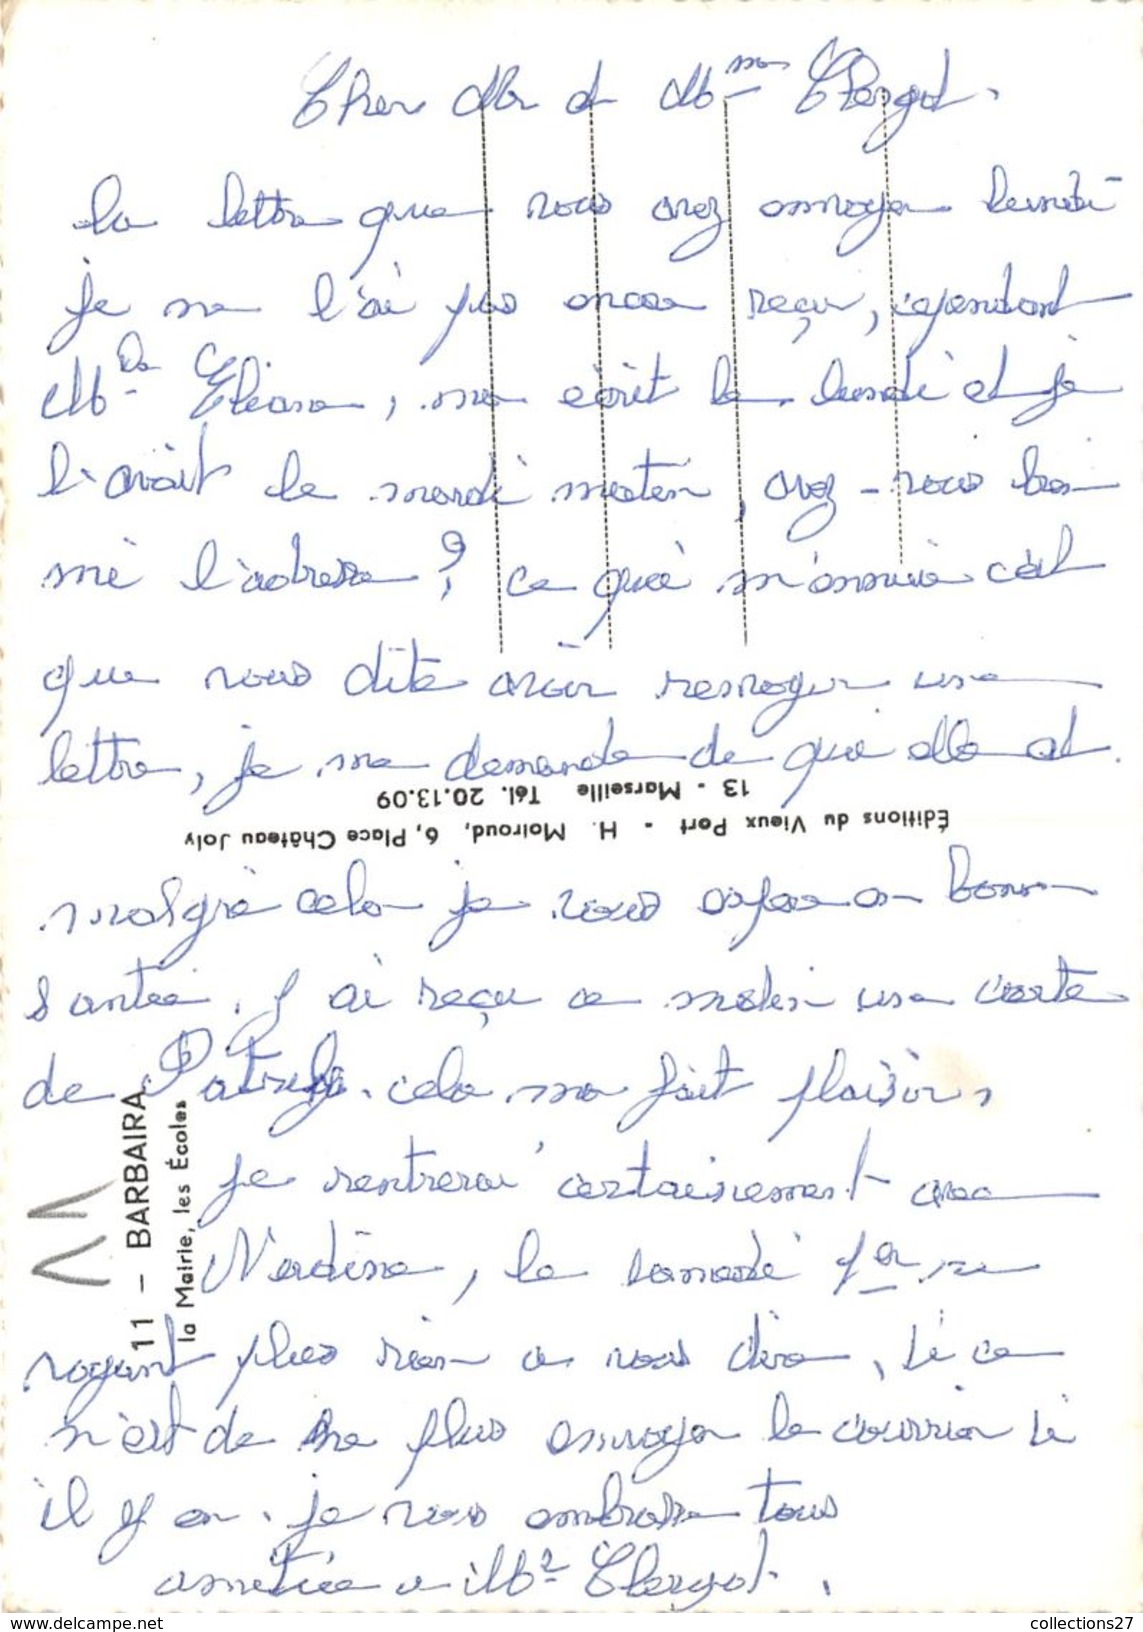 Cher Mr et Mme Clergot.
la lettre que vous avez envoyer lundi
je ne l'ai pas encore reçu, cependant
Mde Eliane, me écrit le lundi et je
l'avait le mardi maten, avez-vous bien
mi l'adresse ? ce què m'ennuie c'est
que vous dite avoir renvoyer une
lettre, je me demande de que elle et.
13 - Marseille Tél. 20.13.09
Éditions du Vieux Port - H. Moiroud, 6, Place Château Joly
malgrè cela je vous espere en bonne
santée. J'ai reçu ce maten une carte
de cela me fait plaisir,
11 - BARBAIRA
la Mairie, les Écoles
je rentrerai certainement avec
Nadine, le samedi 1er, ne
voyant plus rien a vous dire, si ce
n'est de ne plus envoyer le courrier si
il y en. je vous embrasse tous
amitiée a Mr Clergot.
collections27